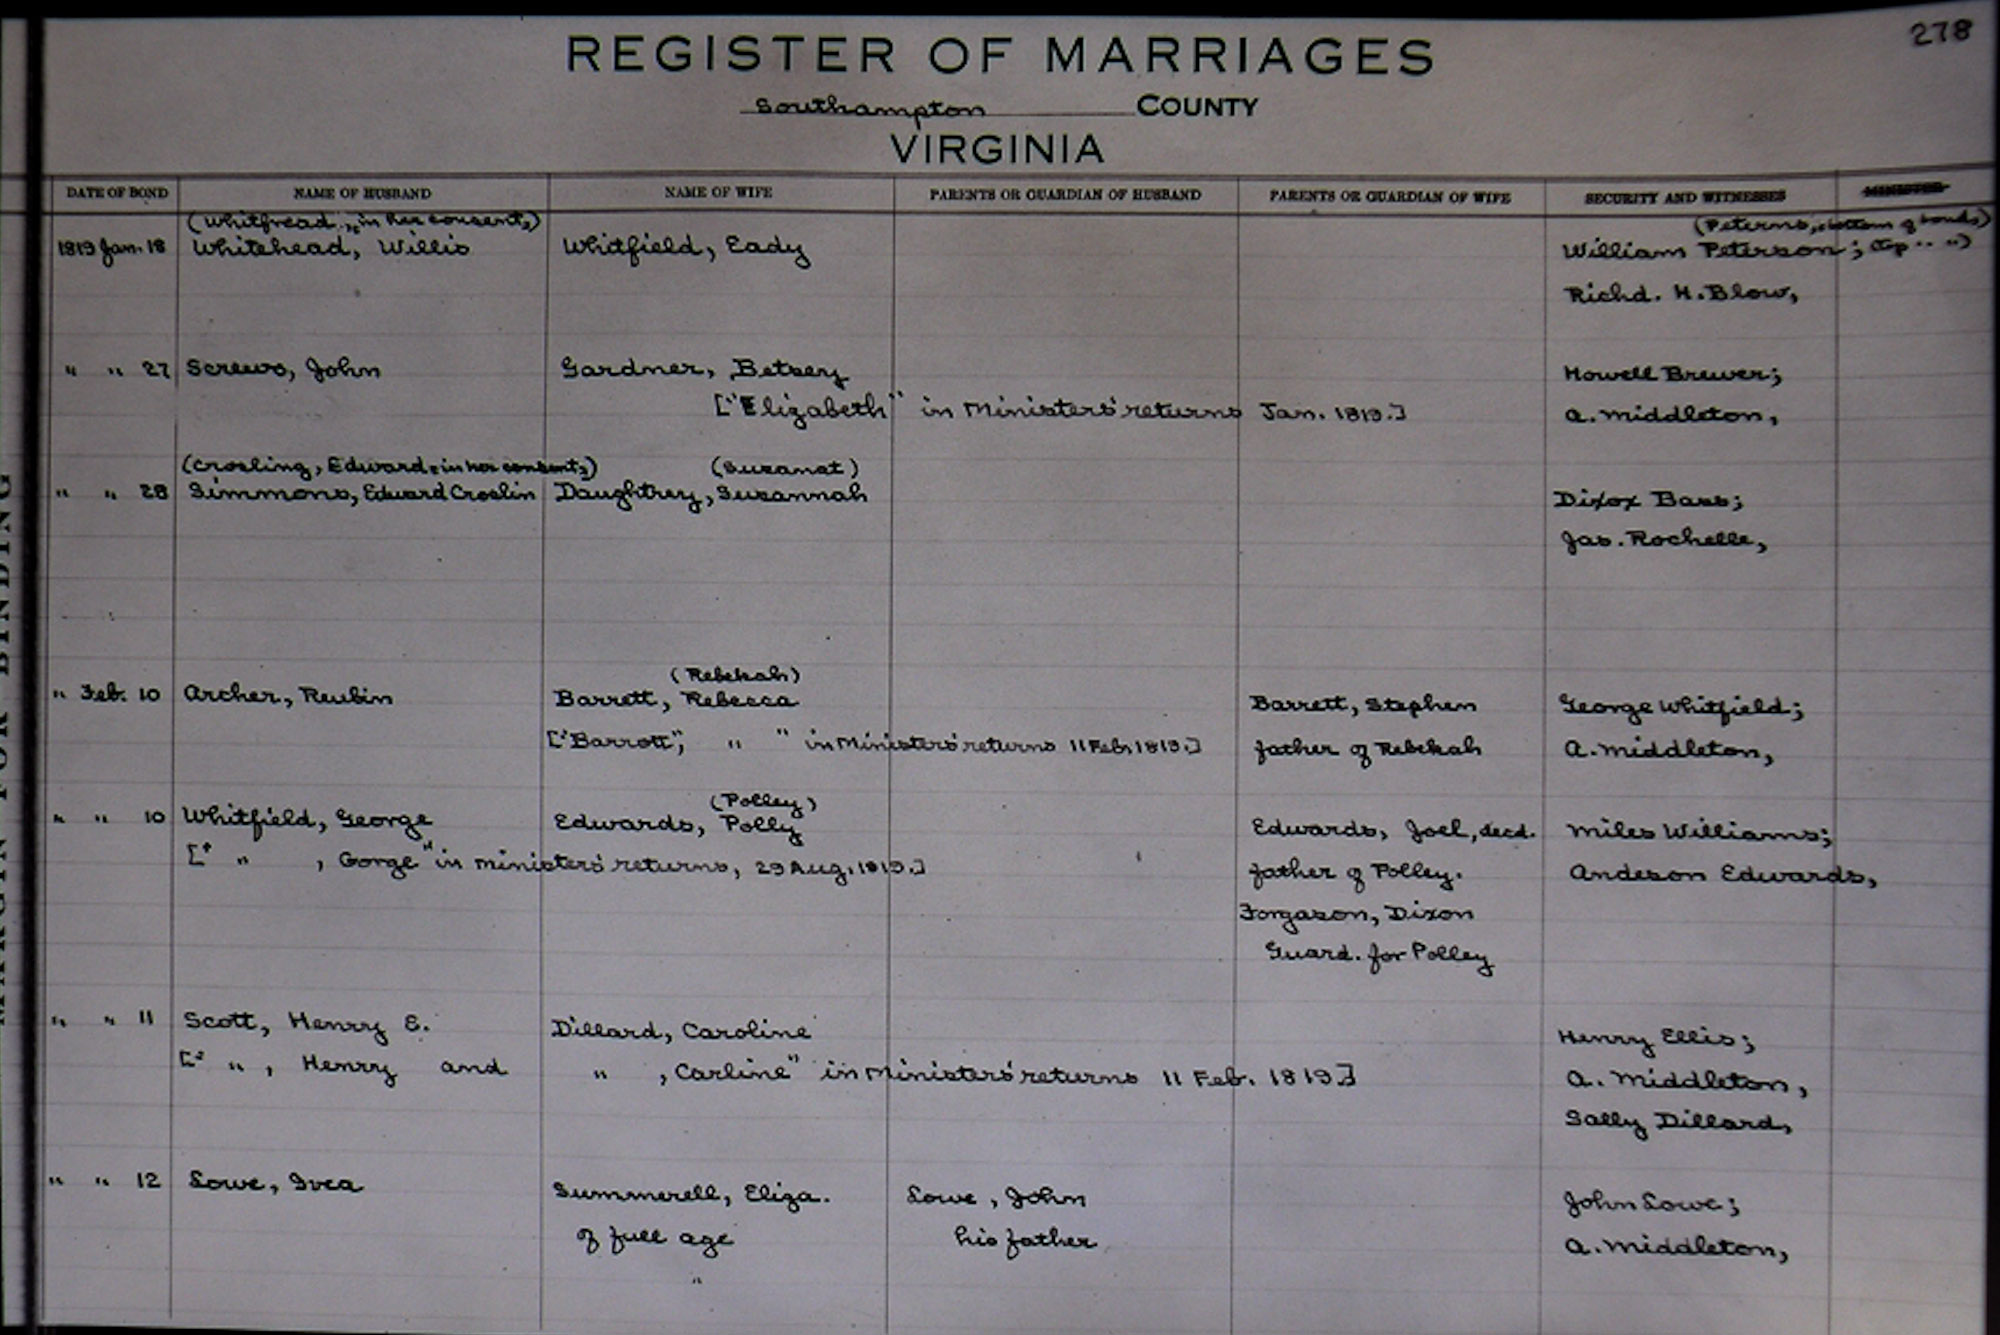 278
REGISTER OF MARRIAGES
Southampton COUNTY
VIRGINIA
DATE OF BOND NAME OF HUSBAND NAME OF WIFE PARENTS OR GUARDIAN OF HUSBAND PARENTS OR GUARDIAN OF WIFE SECURITY AND WITNESSES MINISTER
(Whitfread, "in her consent,) (Peterns, bottom of bond,)
1819 Jan. 18 Whitehead, Willis Whitfield, Eady William Peterson; top " ")
Richd. H. Blow,
" " 27 Screws, John Gardner, Betsey Howell Brewer;
["Elizabeth" in Ministers' returns Jan. 1819.] A. Middleton,
(Crosling, Edward, in her consent,) (Suzanat)
" " 28 Simmons, Edward Croslin Daughtrey, Suzannah Dixox Bass;
Jas. Rochelle,
(Rebekah)
" Feb. 10 Archer, Reubin Barrett, Rebecca Barrett, Stephen George Whitfield;
["Barrott", " " in Ministers' returns 11 Feb. 1819.] father of Rebekah A. Middleton,
(Polley)
" " 10 Whitfield, George Edwards, Polly Edwards, Joel, decd. Miles Williams;
[" " , Gorge" in ministers' returns, 29 Aug. 1819.] father of Polley. Andeson Edwards,
Forgason, Dixon
Guard. for Polley
" " 11 Scott, Henry E. Dillard, Caroline Henry Ellis;
[" " , Henry and " , Carline" in Ministers' returns 11 Feb. 1819] A. Middleton,
Sally Dillard,
" " 12 Lowe, Ivea Summerell, Eliza. Lowe, John John Lowe;
of full age his father A. Middleton,
"
MARGIN FOR BINDING